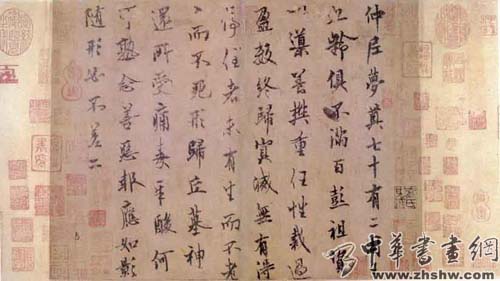 仲尼夢奠七十有二
九齡俱不滿百彭祖資
以導養樊重任性裁過
盈數終歸冥滅無有得
停住者未有生而不老
老而不死形歸丘墓神
還所受痛毒辛酸何
可熟念善惡報應如影
隨形必不差二
中華書畫網
www.zhshw.com